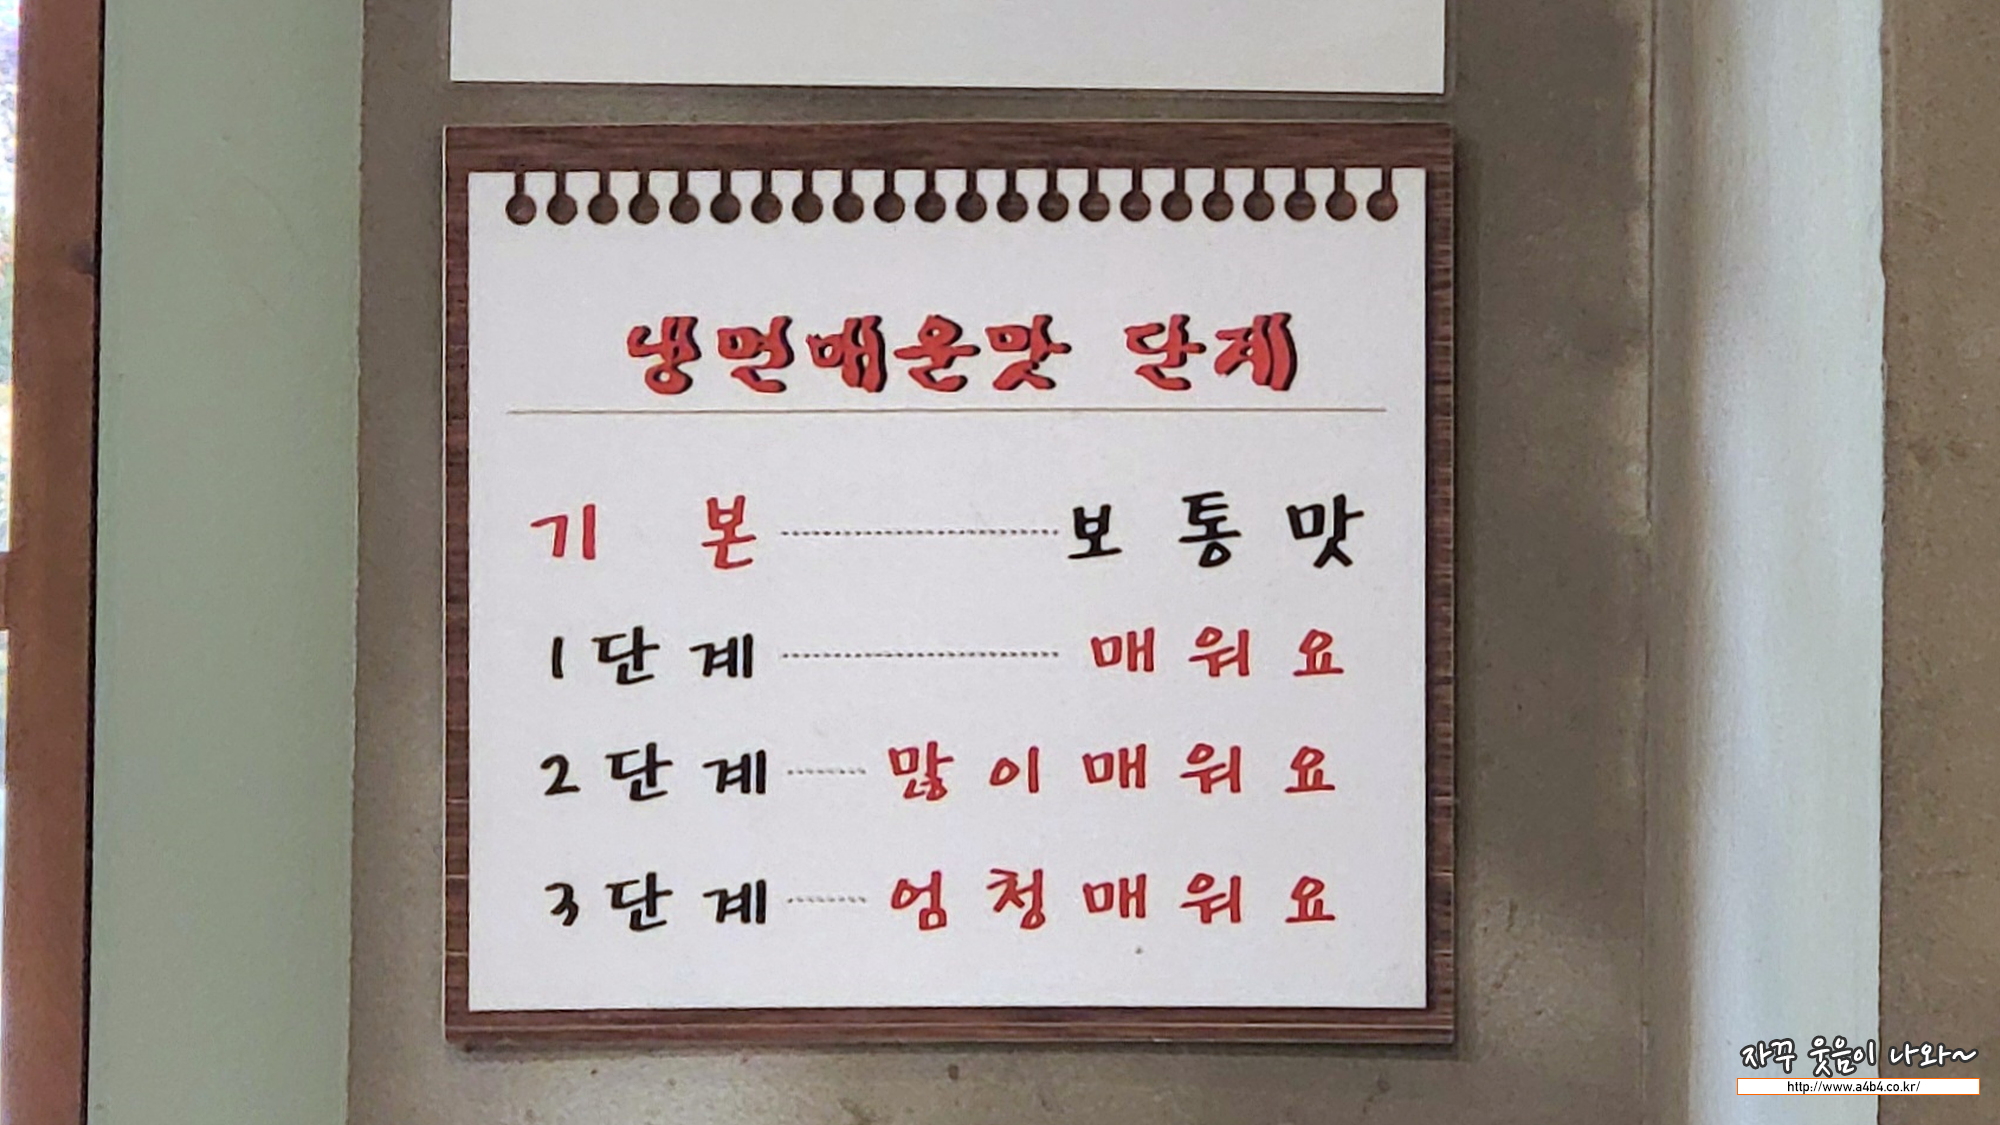 냉면매운맛 단계
기 본 ---------- 보 통 맛
1 단 계 ---------- 매 워 요
2 단 계 ---- 많 이 매 워 요
3 단 계 ---- 엄 청 매 워 요
자꾸 웃음이 나와~
http://www.a4b4.co.kr/